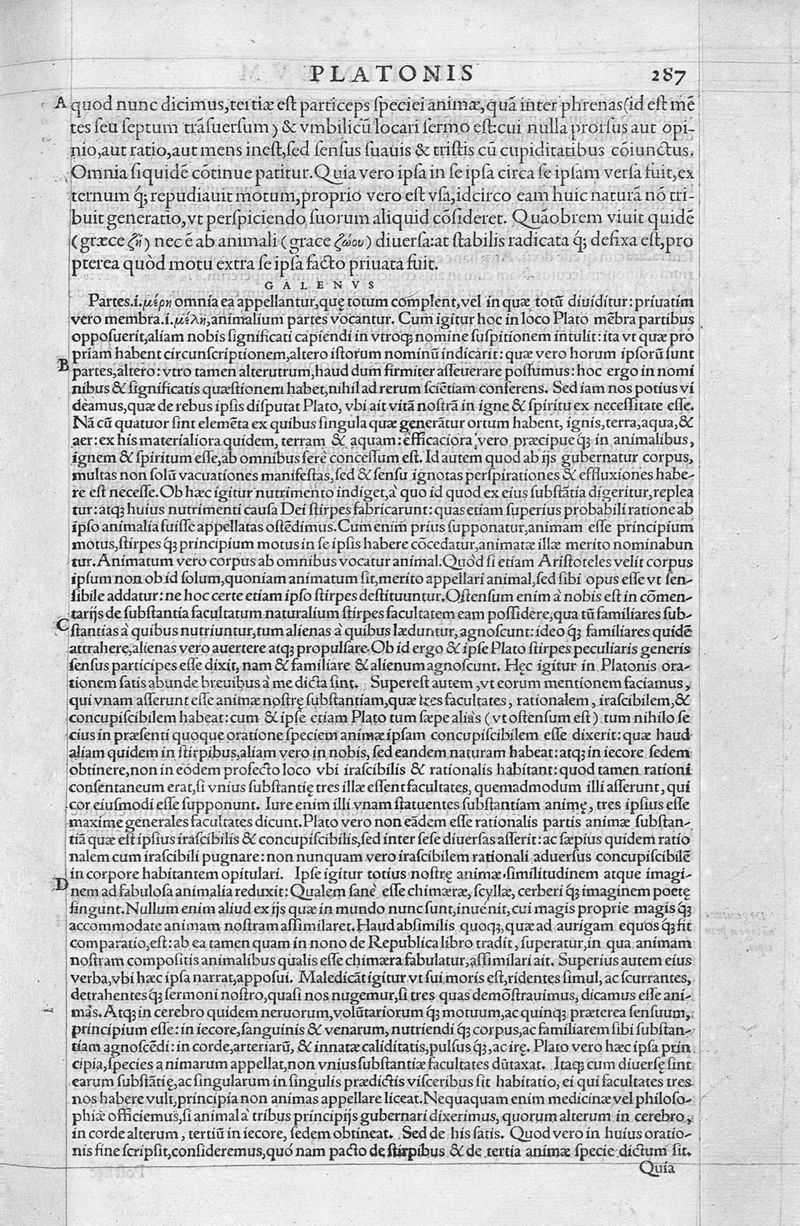 PLATONIS 287
A quod nunc dicimus, tertiæ est particeps speciei animæ, quã inter phrenas (id est mẽ
tes seu septum trãsuersum) & vmbilicũ locari sermo est: cui nulla prorsus aut opi-
nio, aut ratio, aut mens inest, sed sensus suauis & tristis cũ cupiditatibus cõiunctus.
Omnia siquidẽ cõtinue patitur. Quia vero ipsa in se ipsa circa se ipsam versa fuit, ex
ternum q́; repudiauit motum, proprio vero est vsa, idcirco eam huic naturã nõ tri-
buit generatio, vt perspiciendo suorum aliquid cõsideret. Quãobrem viuit quidẽ
(græce ζῆ) nec ẽ ab animali (grace ζώου) diuersa: at stabilis radicata q́; defixa est, pro
pterea quòd motu extra se ipsa facto priuata fuit.
GALENVS
Partes .i. μέρη omnia ea appellantur, quę totum complent, vel in quæ totũ diuiditur: priuatim
vero membra .i. μέλη, animalium partes vocantur. Cum igitur hoc in loco Plato mẽbra partibus
opposuerit, aliam nobis significati capiendi in vtroq; nomine suspitionem intulit: ita vt quæ pro
priam habent circunscriptionem, altero istorum nominũ indicarit: quæ vero horum ipsorũ sunt
B partes, altero: vtro tamen alterutrum, haud dum firmiter asseuerare possumus: hoc ergo in nomi
nibus & significatis quæstionem habet, nihil ad rerum sciẽtiam conferens. Sed iam nos potius vi
deamus, quæ de rebus ipsis disputat Plato, vbi ait vitã nostrã in igne & spiritu ex necessitate esse.
Nã cũ quatuor sint elemẽta ex quibus singula quæ generãtur ortum habent, ignis, terra, aqua, &
aer: ex his materialiora quidem, terram & aquam: efficaciora vero præcipue q́; in animalibus,
ignem & spiritum esse, ab omnibus fere concessum est. Id autem quod ab ijs gubernatur corpus,
multas non solũ vacuationes manifestas, sed & sensu ignotas perspirationes & effluxiones habe-
re est necesse. Ob hæc igitur nutrimento indiget, a' quo id quod ex eius substãtia digeritur, replea
tur: atq; huius nutrimenti causa Dei stirpes fabricarunt: quas etiam superius probabili ratione ab
ipso animalia fuisse appellatas ostẽdimus. Cum enim prius supponatur, animam esse principium
motus, stirpes q́; principium motus in se ipsis habere cõcedatur, animatæ illæ merito nominabun
tur. Animatum vero corpus ab omnibus vocatur animal. Quòd si etiam Aristoteles velit corpus
ipsum non ob id solum, quoniam animatum sit, merito appellari animal, sed sibi opus esse vt sen-
sibile addatur: ne hoc certe etiam ipso stirpes destituuntur. Ostensum enim a' nobis est in cõmen-
tarijs de substantia facultatum naturalium stirpes facultatem eam possidere, qua tũ familiares sub-
C stantias a' quibus nutriuntur, tum alienas a' quibus læduntur, agnoscunt: ideo q́; familiares quidẽ
attrahere, alienas vero auertere atq; propulsare. Ob id ergo & ipse Plato stirpes peculiaris generis
sensus participes esse dixit, nam & familiare & alienum agnoscunt. Hęc igitur in Platonis ora-
tionem satis abunde breuibus a' me dicta sint. Superest autem, vt eorum mentionem faciamus,
qui vnam asserunt esse animæ nostrę substantiam, quæ tres facultates, rationalem, irascibilem, &
concupiscibilem habeat: cum & ipse etiam Plato tum sæpe alia's (vt ostensum est) tum nihilo se
cius in præsenti quoque oratione speciem animæ ipsam concupiscibilem esse dixerit: quæ haud
aliam quidem in stirpibus, aliam vero in nobis, sed eandem naturam habeat: atq; in iecore sedem
obtinere, non in eodem profecto loco vbi irascibilis & rationalis habitant: quod tamen rationi
consentaneum erat, si vnius substantię tres illæ essent facultates, quemadmodum illi asserunt, qui
cor eiusmodi esse supponunt. Iure enim illi vnam statuentes substantiam animę, tres ipsius esse
maxime generales facultates dicunt. Plato vero non eãdem esse rationalis partis animæ substan-
tiã quæ est ipsius irascibilis & concupiscibilis, sed inter sese diuersas asserit: ac sæpius quidem ratio
nalem cum irascibili pugnare: non nunquam vero irascibilem rationali aduersus concupiscibilẽ
in corpore habitantem opitulari. Ipse igitur totius nostrę animæ similitudinem atque imagi-
D nem ad fabulosa animalia reduxit: Qualem sanè esse chimæræ, scyllæ, cerberi q́; imaginem poetę
fingunt. Nullum enim aliud ex ijs quæ in mundo nunc sunt, inuenit, cui magis proprie magis q́;
accommodate animam nostram assimilaret. Haud absimilis quoq;, quæ ad aurigam equos q́; fit
comparatio, est: ab ea tamen quam in nono de Republica libro tradit, superatur, in qua animam
nostram compositis animalibus qualis esse chimæra fabulatur, assimilari ait. Superius autem eius
verba, vbi hæc ipsa narrat, apposui. Maledicãt igitur vt sui moris est, ridentes simul, ac scurrantes,
detrahentes q́; sermoni nostro, quasi nos nugemur, si tres quas demõstrauimus, dicamus esse ani-
mas. Atq; in cerebro quidem neruorum, volũtariorum q́; motuum, ac quinq; præterea sensuum,
principium esse: in iecore, sanguinis & venarum, nutriendi q́; corpus, ac familiarem sibi substan-
tiam agnoscẽdi: in corde, arteriarũ, & innatæ caliditatis, pulsus q́;, ac irę. Plato vero hæc ipsa prin
cipia, species animarum appellat, non vnius substantiæ facultates dũtaxat. Itaq; cum diuersę sint
earum substãtię, ac singularum in singulis prædictis visceribus sit habitatio, ei qui facultates tres
nos habere vult, principia non animas appellare liceat. Nequaquam enim medicinæ vel philoso-
phiæ officiemus, si animal a' tribus principijs gubernari dixerimus, quorum alterum in cerebro,
in corde alterum, tertiũ in iecore, sedem obtineat. Sed de his satis. Quod vero in huius oratio-
nis fine scripsit, consideremus, quo nam pacto de stirpibus & de tertia animæ specie dictum sit.
Quia